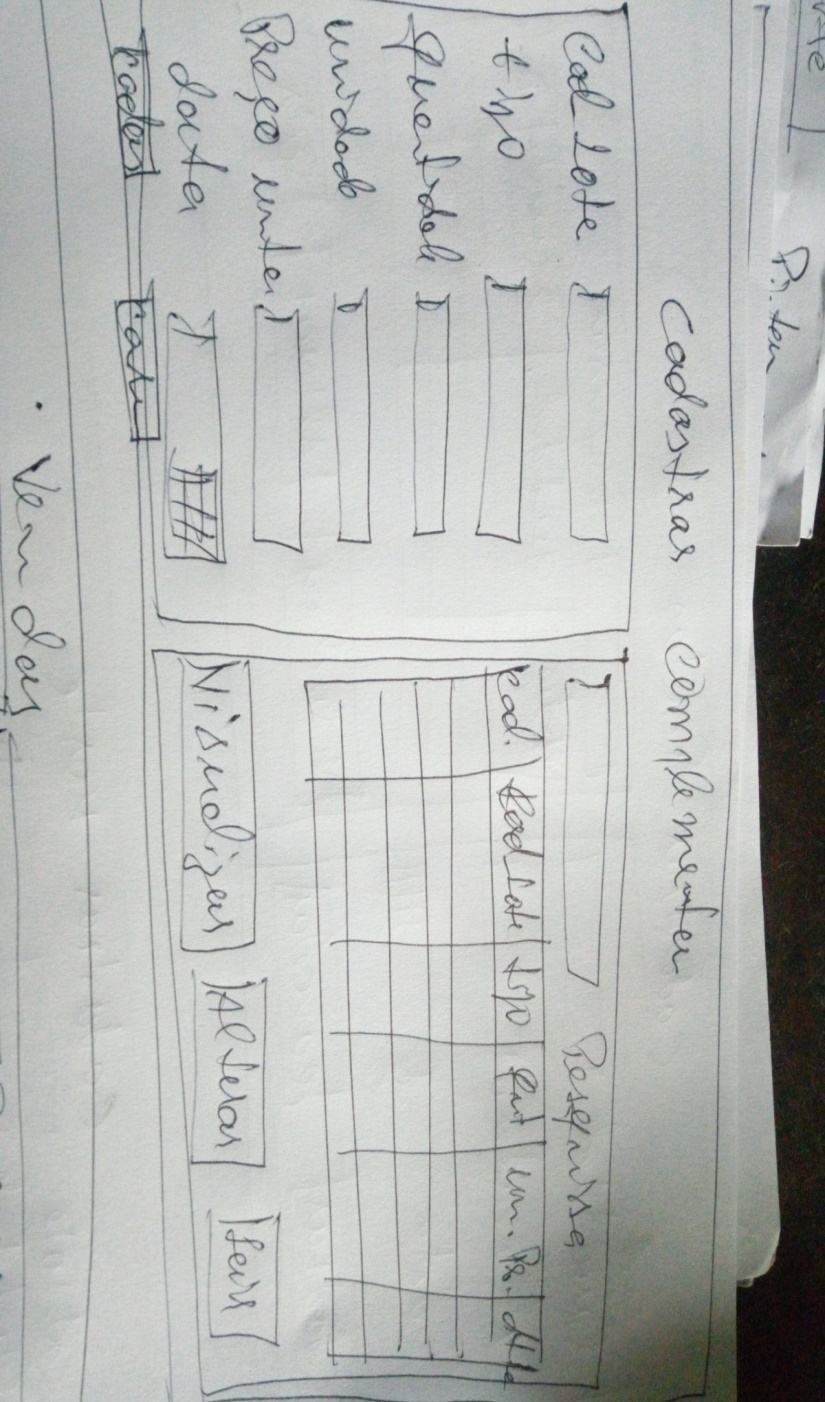 Cadastrar complementar
Cod Lote
tipo
Quantidade
unidad
Preço unitar
data
/ /
cadas
Pesquisa
cod. codLote tipo Qnt un. Pr. dta
Visualizar Alterar Sair
Vendas